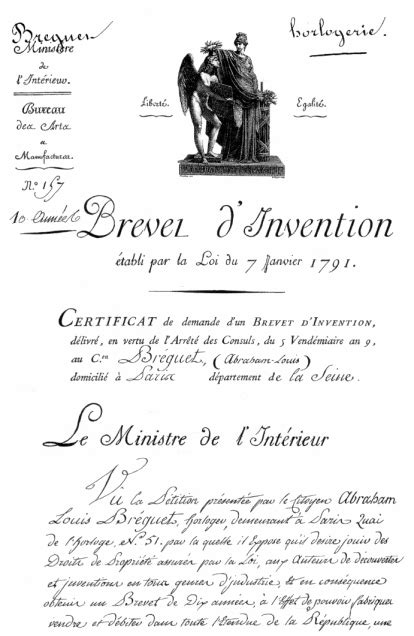 Breguet
horlogerie.
Ministère
de
l'Intérieur.
Bureau
des Arts
et
Manufactures.
N.° 157
10 Années
Liberté.
Egalité.
Brevet d'Invention
établi par la Loi du 7 Janvier 1791.
CERTIFICAT de demande d'un BREVET D'INVENTION,
délivré, en vertu de l'Arrêté des Consuls, du 5 Vendémiaire an 9,
au C.en Bréguet, (Abraham-Louis)
domicilié à Paris département de la Seine.
Le Ministre de l'Intérieur
Vu la Pétition présentée par le Citoyen Abraham
Louis Bréguet, horloger, demeurant à Paris Quai
de l'horloge, N.° 51, par la quelle il Expose qu'il desire jouir des
Droits de Propriété assurés par la Loi, aux Auteurs de découvertes
et inventions en tous genres d'industrie; et en conséquence
obtenir un Brevet de Dix années, à l'Effet de pouvoir fabriquer
vendre et débiter dans toute l'Etendue de la République, une